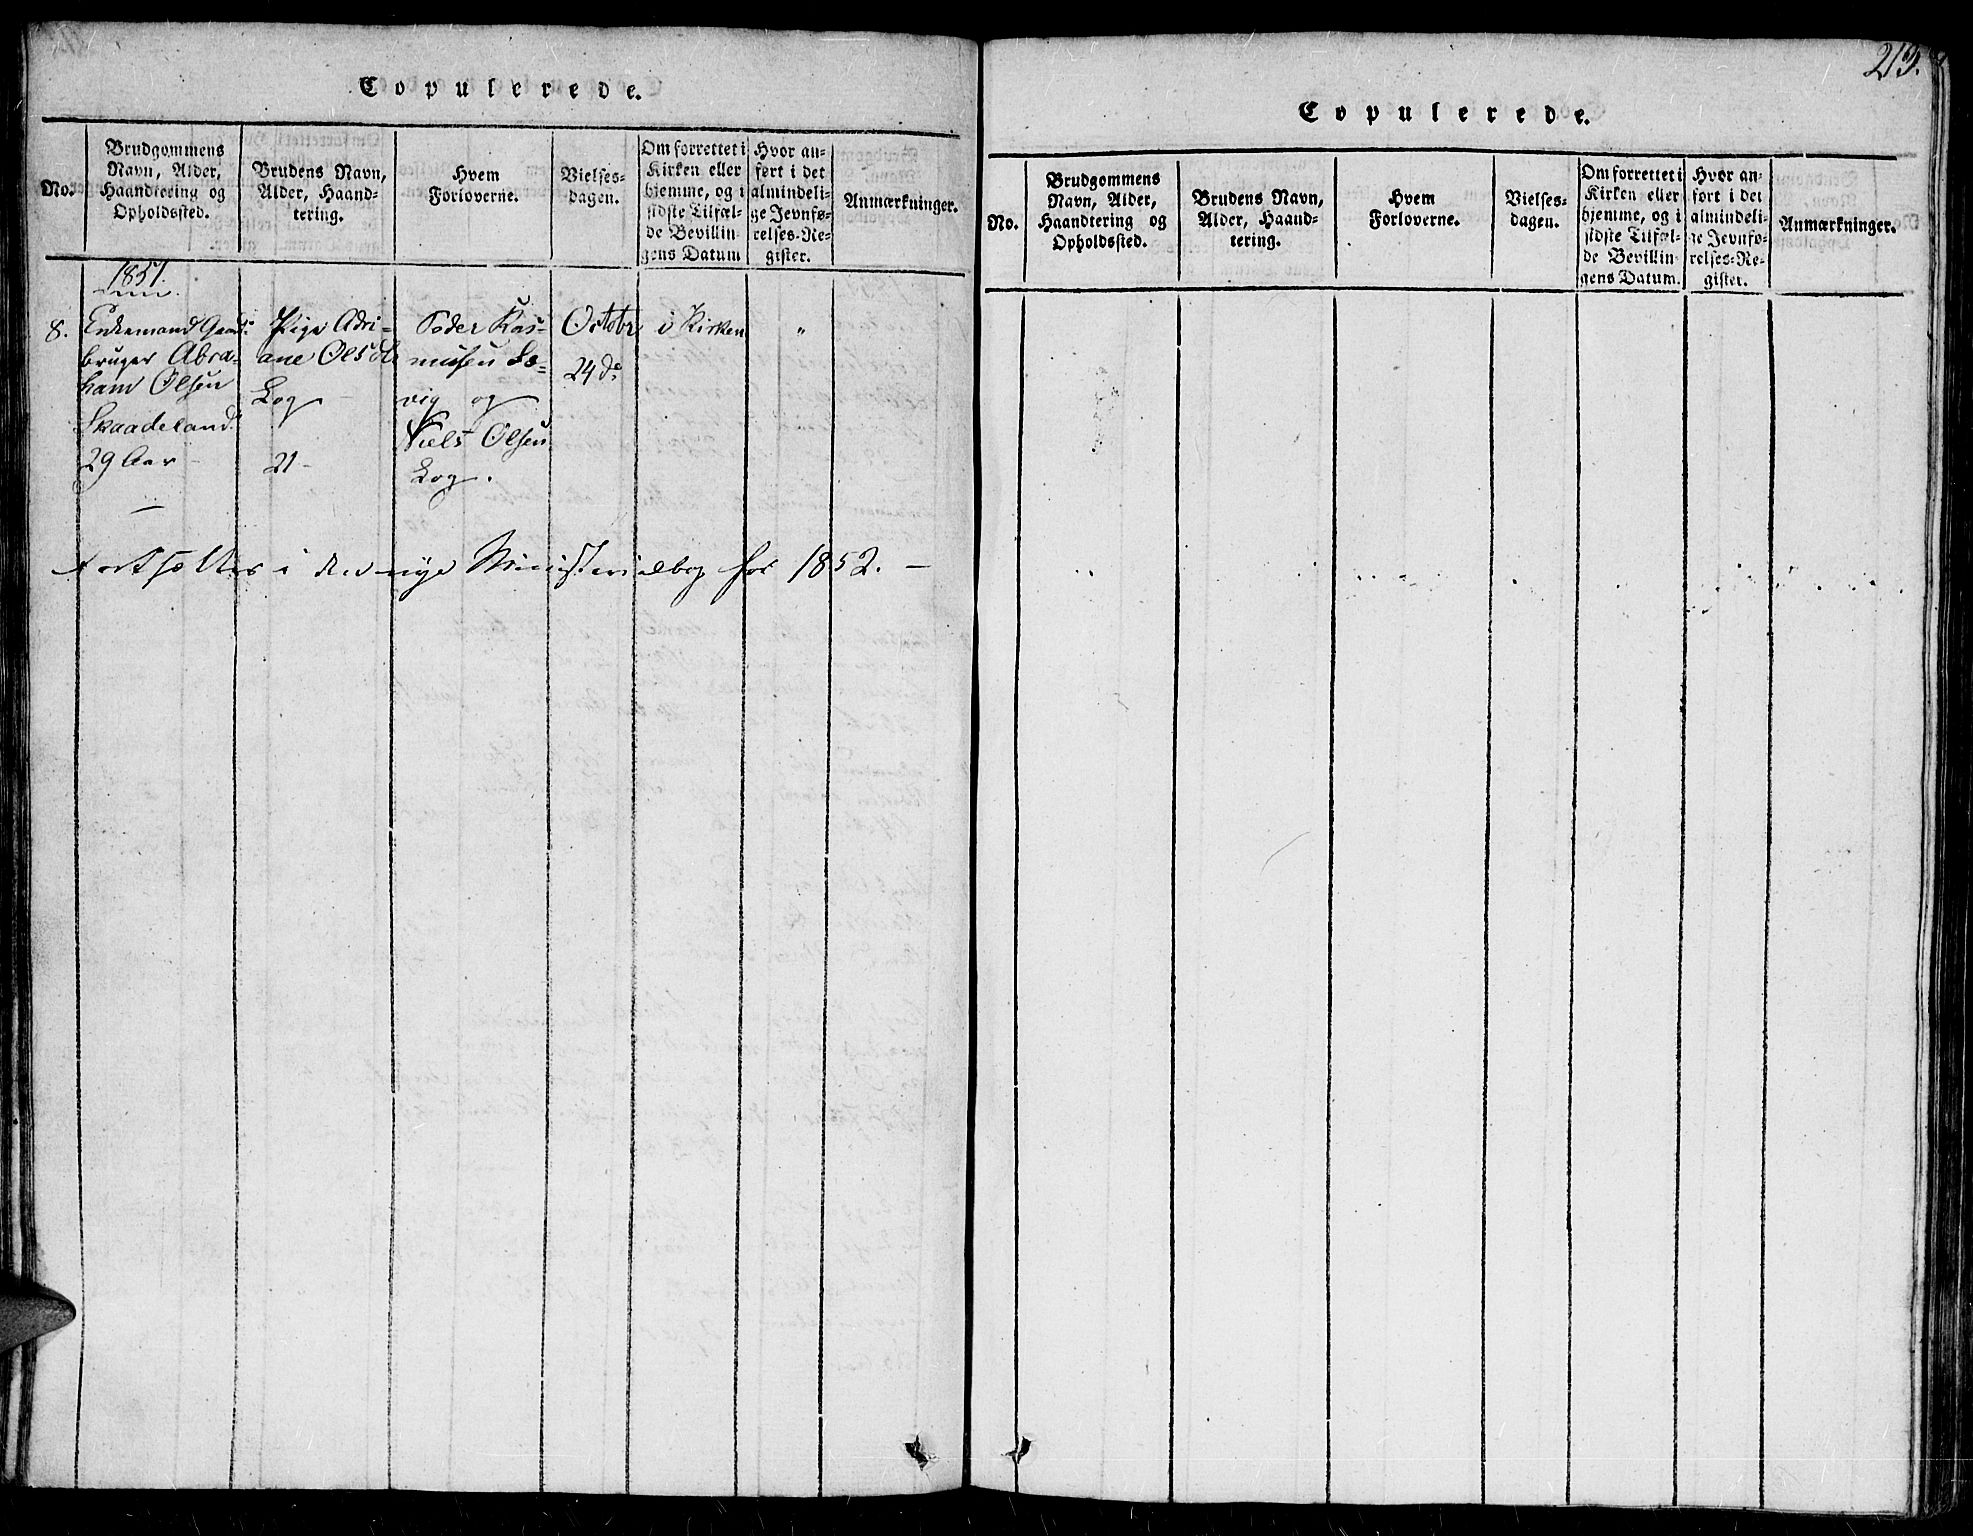 Copulerede.
No.
Brudgommens
Navn, Alder,
Haandtering og
Opholdssted.
Brudens Navn,
Alder, Haand-
tering.
Hvem
Forloverne.
Vielses-
dagen.
Om forrettet i
Kirken eller
hjemme, og i
sidste Tilfæl-
de Bevillin-
gens Datum
Hvor an-
ført i det
almindeli-
ge Jevnfø-
relses-Re-
gister.
Anmærkninger.
1851.
8.
Enkemand Gaard-
bruger Abra-
ham Olsen
Skaadeland
29 Aar -
Pige Adri-
ane Olsdtr
Log -
21 -
Peder Ras-
musen
og
Niels Olsen
Log.
Octobr
24de
i Kirken
"
Fortsættes i den nye Ministerialbog for 1852. -
213.
Copulerede.
No.
Brudgommens
Navn, Alder,
Haandtering og
Opholdssted.
Brudens Navn,
Alder, Haand-
tering.
Hvem
Forloverne.
Vielses-
dagen.
Om forrettet i
Kirken eller
hjemme, og i
sidste Tilfæl-
de Bevillin-
gens Datum.
Hvor an-
ført i det
almindeli-
ge Jevnfø-
relses-Re-
gister.
Anmærkninger.